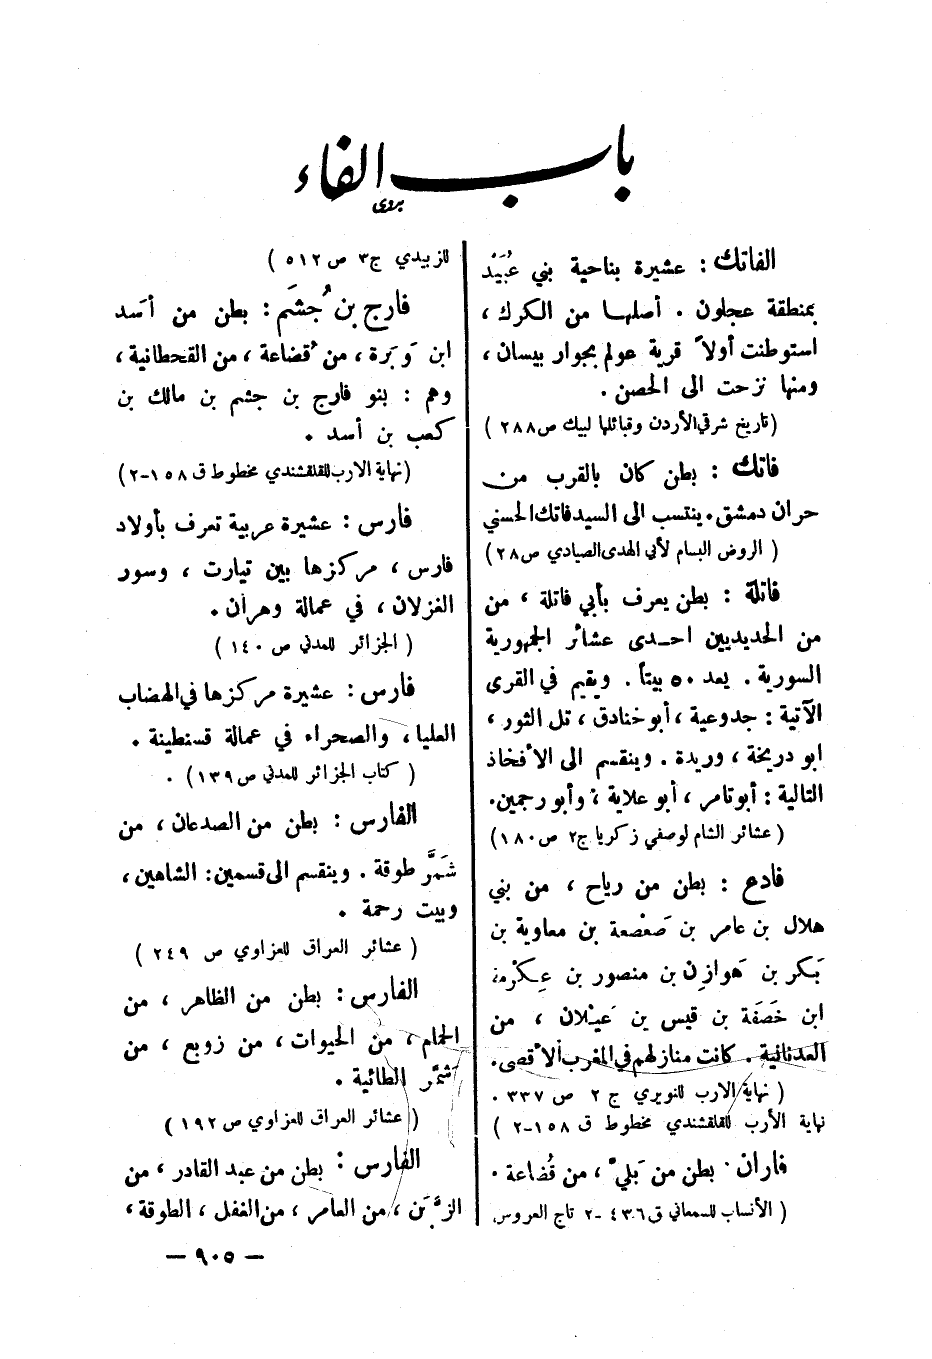 باب الفاء
الفاتك : عشيرة بناحية بني عُبَيْد
بمنطقة عجلون . أصلهـا من الكرك ،
استوطنت أولاً قرية عولم بجوار بيسان ،
ومنها نزحت الى الحصن .
(تاريخ شرقي الأردن وقبائلها لبيك ص٢٨٨ )
فاتك : بطن كان بالقرب من
حران دمشق . ينتسب الى السيد فاتك الحسني
( الروض البسام لأبي الهدى الصيادي ص٢٨)
فاتلة : بطن يعرف بأبي فاتلة ، من
من الحديديين احـدى عشائر الجمهورية
السورية . يعد ٥٠ بيتاً . ويقيم في القرى
الآتية : جدوعية ، أبو خنادق ، تل الثور ،
ابو دريخة ، وريدة . وينقسم الى الأفخاذ
التالية : أبو تامر ، أبو علاية ، وأبو رجمين.
( عشائر الشام لوصفي زكريا ج٢ ص١٨٠)
فادع : بطن من رياح ، من بني
هلال بن عامر بن صَعْصعة بن معاوية بن
بَكر بن هَوازِن بن منصور بن عِكْرمة
ابن خَصَفَة بن قيس بن عَيْلان ، من
العدنانية . كانت منازلهم في المغرب الأقصى.
( نهاية الارب للنويري ج ٢ ص ٣٣٧ .
نهاية الأرب للقلقشندي مخطوط ق ١٥٨-٢ )
فاران : بطن من بَليّ ، من قُضاعة .
( الأنساب للسمعاني ق ٤٣٦-٢ تاج العروس
للزبيدي ج٣ ص ٥١٢ )
فارج بن جُشَم : بطن من أسَد
ابن وَبَرة ، من قُضاعة ، من القحطانية ،
وهم : بنو فارج بن جشم بن مالك بن
كعب بن أسد .
(نهاية الارب للقلقشندي مخطوط ق ١٥٨-٢)
فارس : عشيرة عربية تعرف بأولاد
فارس ، مركزها بين تيارت ، وسور
الغزلان ، في عمالة وهران .
( الجزائر للمدني ص ١٤٠ )
فارس : عشيرة مركزها في الهضاب
العليا ، والصحراء في عمالة قسنطينة .
( كتاب الجزائر للمدني ص١٣٩) .
الفارس : بطن من الصدعان ، من
شَمَّر طوقة . وينقسم الى قسمين : الشاهين ،
وبيت رحمة .
( عشائر العراق للعزاوي ص ٢٤٩ )
الفارس : بطن من الظاهر ، من
الحمام ، من الحيوات ، من زوبع ، من
شَمَّر الطائية .
( عشائر العراق للعزاوي ص ١٩٢ )
الفارس : بطن من عبد القادر ، من
من العامر ، من الغفل ، الطوقة ،
— ٩٠٥ —